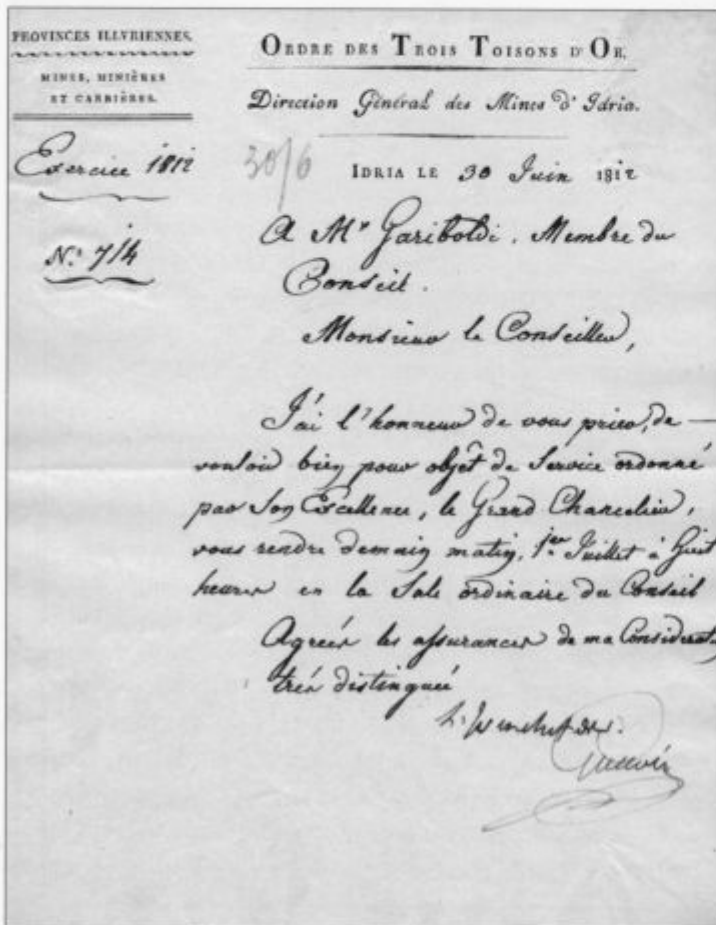 PROVINCES ILLYRIENNES.
MINES, MINIÈRES
ET CARRIÈRES.
Exercice 1812
N.° 714
ORDRE DES TROIS TOISONS D'OR.
Direction Général des Mines d'Idria.
30/6
IDRIA LE 30 Juin 1812
A Mr Gariboldi, Membre du
Conseil.
Monsieur le Conseiller,
J'ai l'honneur de vous prier, de
vouloir bien pour objêt de Service ordonné
par Son Excellence, le Grand Chancelier,
vous rendre demain matin, 1er Juillet à huit
heures en la Sale ordinaire du Conseil
Agréés les assurances de ma Considerat
très distinguée